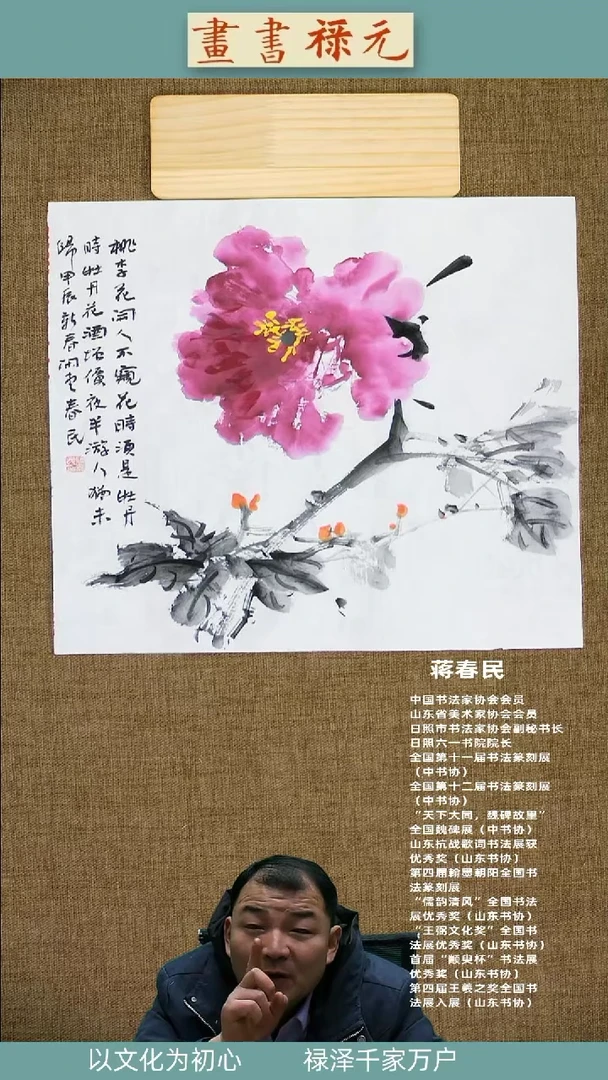 元禄書畫
桃李花開人不窺花時須是牡丹
時牡丹花酒增價夜半游人猶未
歸甲辰新春春民
蒋春民
中国书法家协会会员
山东省美术家协会会员
日照市书法家协会副秘书长
日照六一书院院长
全国第十一届书法篆刻展
（中书协）
全国第十二届书法篆刻展
（中书协）
“天下大同，魏碑故里”
全国魏碑展（中书协）
山东抗战歌词书法展获
优秀奖（山东书协）
第四届翰墨朝阳全国书
法篆刻展
“儒韵清风”全国书法
展优秀奖（山东书协）
“王弼文化奖”全国书
法展优秀奖（山东书协）
首届“颛臾杯”书法展
优秀奖（山东书协）
第四届王羲之奖全国书
法展入展（山东书协）
以文化为初心 禄泽千家万户